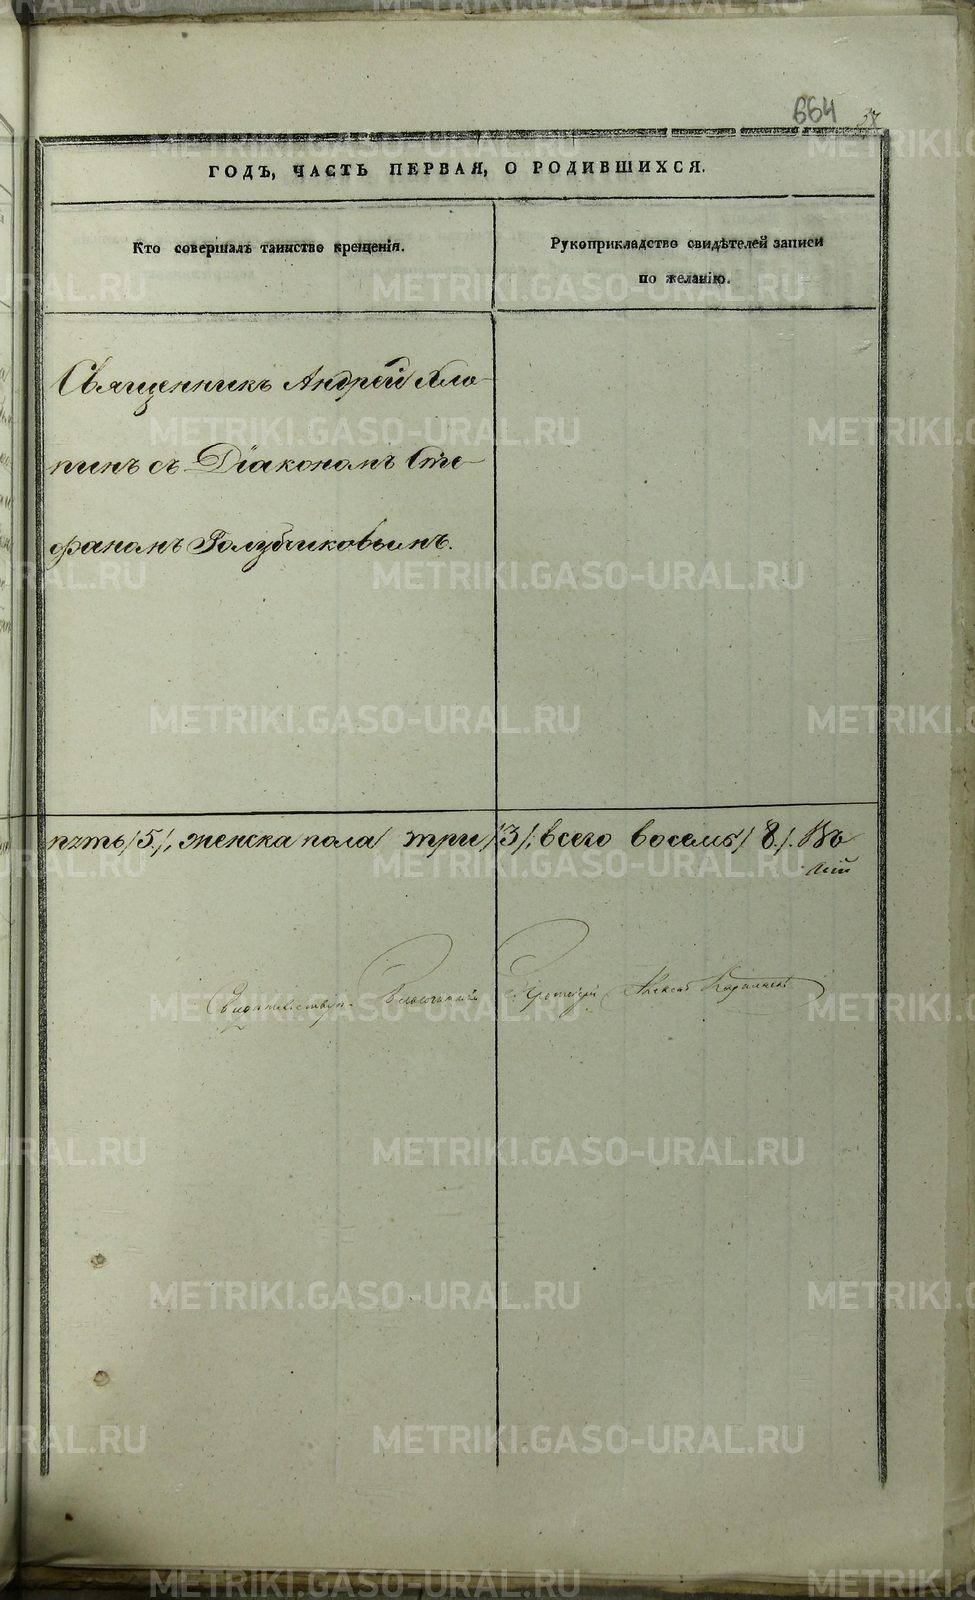 664
37
ГОДЪ, ЧАСТЬ ПЕРВАЯ, О РОДИВШИХСЯ.
Кто совершалъ таинство крещенія.
Рукоприкладство свидѣтелей записи
по желанію.
Священникъ Андрей Хло-
пинъ съ Діакономъ Сте-
фаномъ Голубчиковымъ.
пять /5/, женска пола три /3/, всего восемь /8/. Въ
Свидѣтельствую Благочинный Протоіерей Алексѣй
METRIKI.GASO-URAL.RU